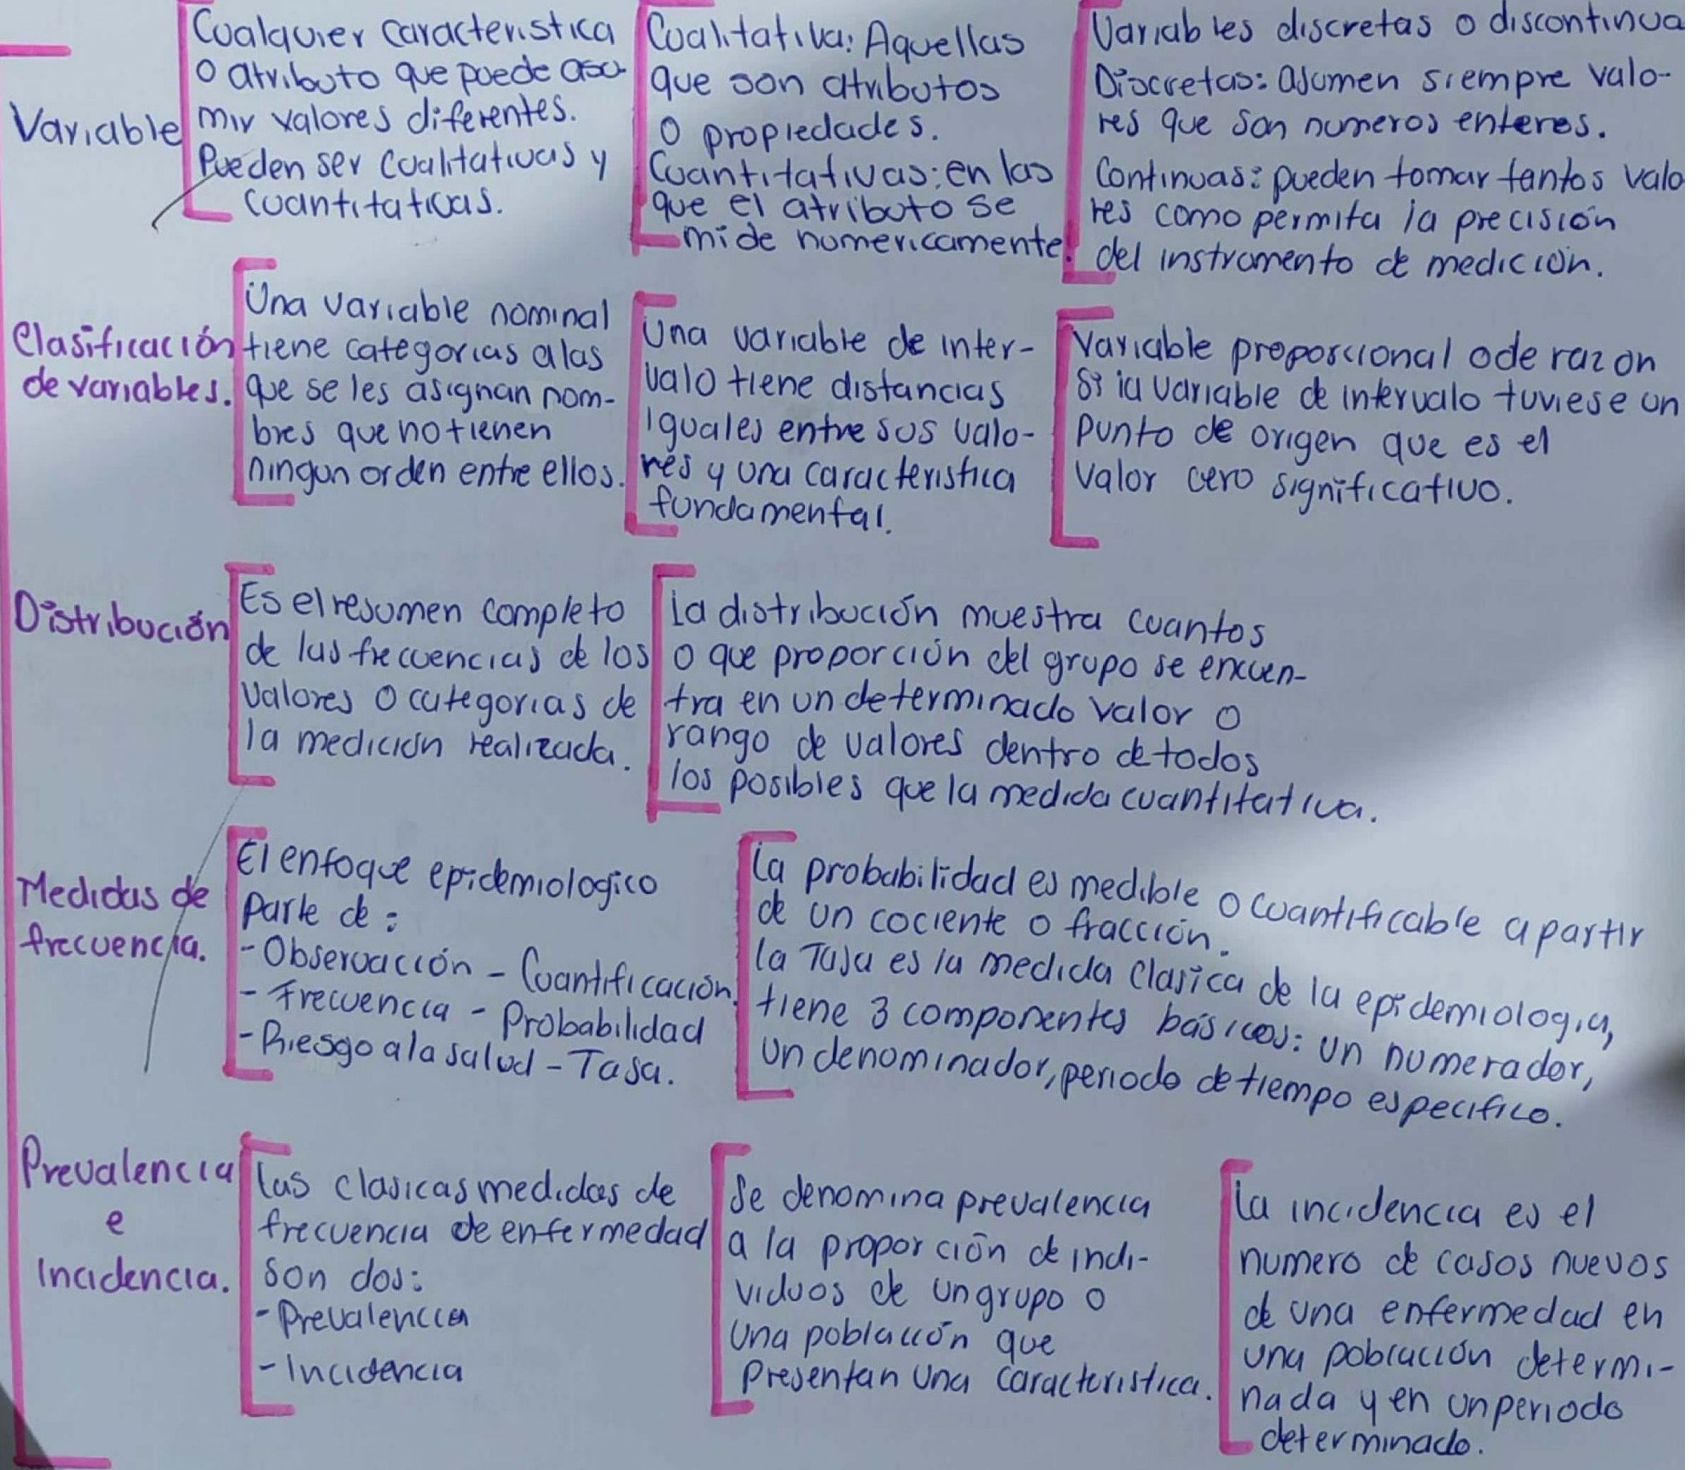 Variable
Cualquier caracteristica
o atributo que puede asu-
mir valores diferentes.
Pueden ser cualitativas y
cuantitativas.
Cualitativa: Aquellas
que son atributos
o propiedades.
Cuantitativas: en las
que el atributo se
mide numericamente.
Variables discretas o discontinua
Discretas: asumen siempre valo-
res que son numeros enteros.
Continuas: pueden tomar tantos valo
res como permita la precisión
del instrumento de medición.
Clasificación
de variables.
Una variable nominal
tiene categorias a las
que se les asignan nom-
bres que no tienen
ningun orden entre ellos.
Una variable de inter-
valo tiene distancias
iguales entre sus valo-
res y una caracteristica
fundamental.
Variable proporcional o de razon
Si la variable de intervalo tuviese un
punto de origen que es el
valor cero significativo.
Distribución
Es el resumen completo
de las frecuencias de los
valores o categorias de
la medición realizada.
La distribución muestra cuantos
o que proporción del grupo se encuen-
tra en un determinado valor o
rango de valores dentro de todos
los posibles que la medida cuantitativa.
Medidas de
frecuencia.
El enfoque epidemiologico
parte de:
- Observación - Cuantificación.
- Frecuencia - Probabilidad
- Riesgo a la salud - Tasa.
La probabilidad es medible o cuantificable a partir
de un cociente o fracción.
la Tasa es la medida clasica de la epidemiologia,
tiene 3 componentes básicos: un numerador,
un denominador, periodo de tiempo especifico.
Prevalencia
e
Incidencia.
Las clasicas medidas de
frecuencia de enfermedad
son dos:
- Prevalencia
- Incidencia
Se denomina prevalencia
a la proporción de indi-
viduos de un grupo o
una población que
presentan una caracteristica.
La incidencia es el
numero de casos nuevos
de una enfermedad en
una población determi-
nada y en un periodo
determinado.